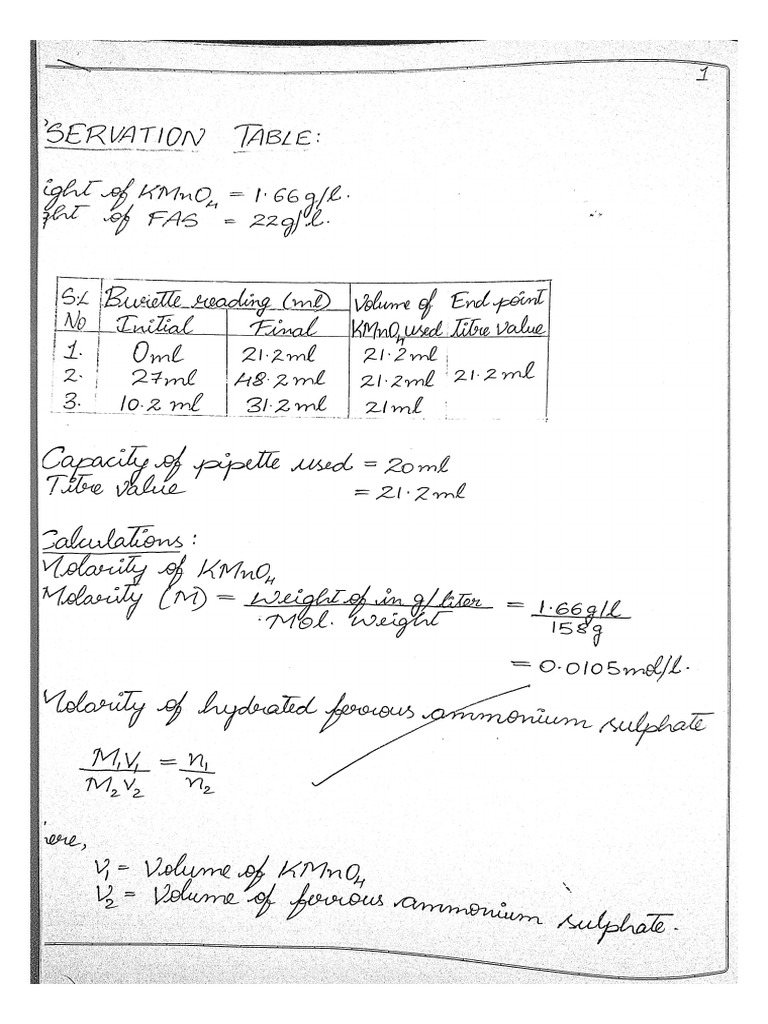 1
'SERVATION TABLE:
ight of KMnO₄ = 1.66g/l.
ght of FAS = 22g/l.
S.L No Burette reading (ml) Volume of KMnO₄ used End point titre value
Initial Final
1. 0ml 21.2ml 21.2ml
2. 27ml 48.2ml 21.2ml 21.2ml
3. 10.2ml 31.2ml 21ml
Capacity of pipette used = 20ml
Titre value = 21.2ml
Calculations:
Molarity of KMnO₄
Molarity (M) = Weight of in g/liter / Mol. Weight = 1.66g/l / 158g
= 0.0105mol/l.
Molarity of hydrated ferrous ammonium sulphate
M₁V₁ / M₂V₂ = n₁ / n₂
ere,
V₁ = Volume of KMnO₄
V₂ = Volume of ferrous ammonium sulphate.